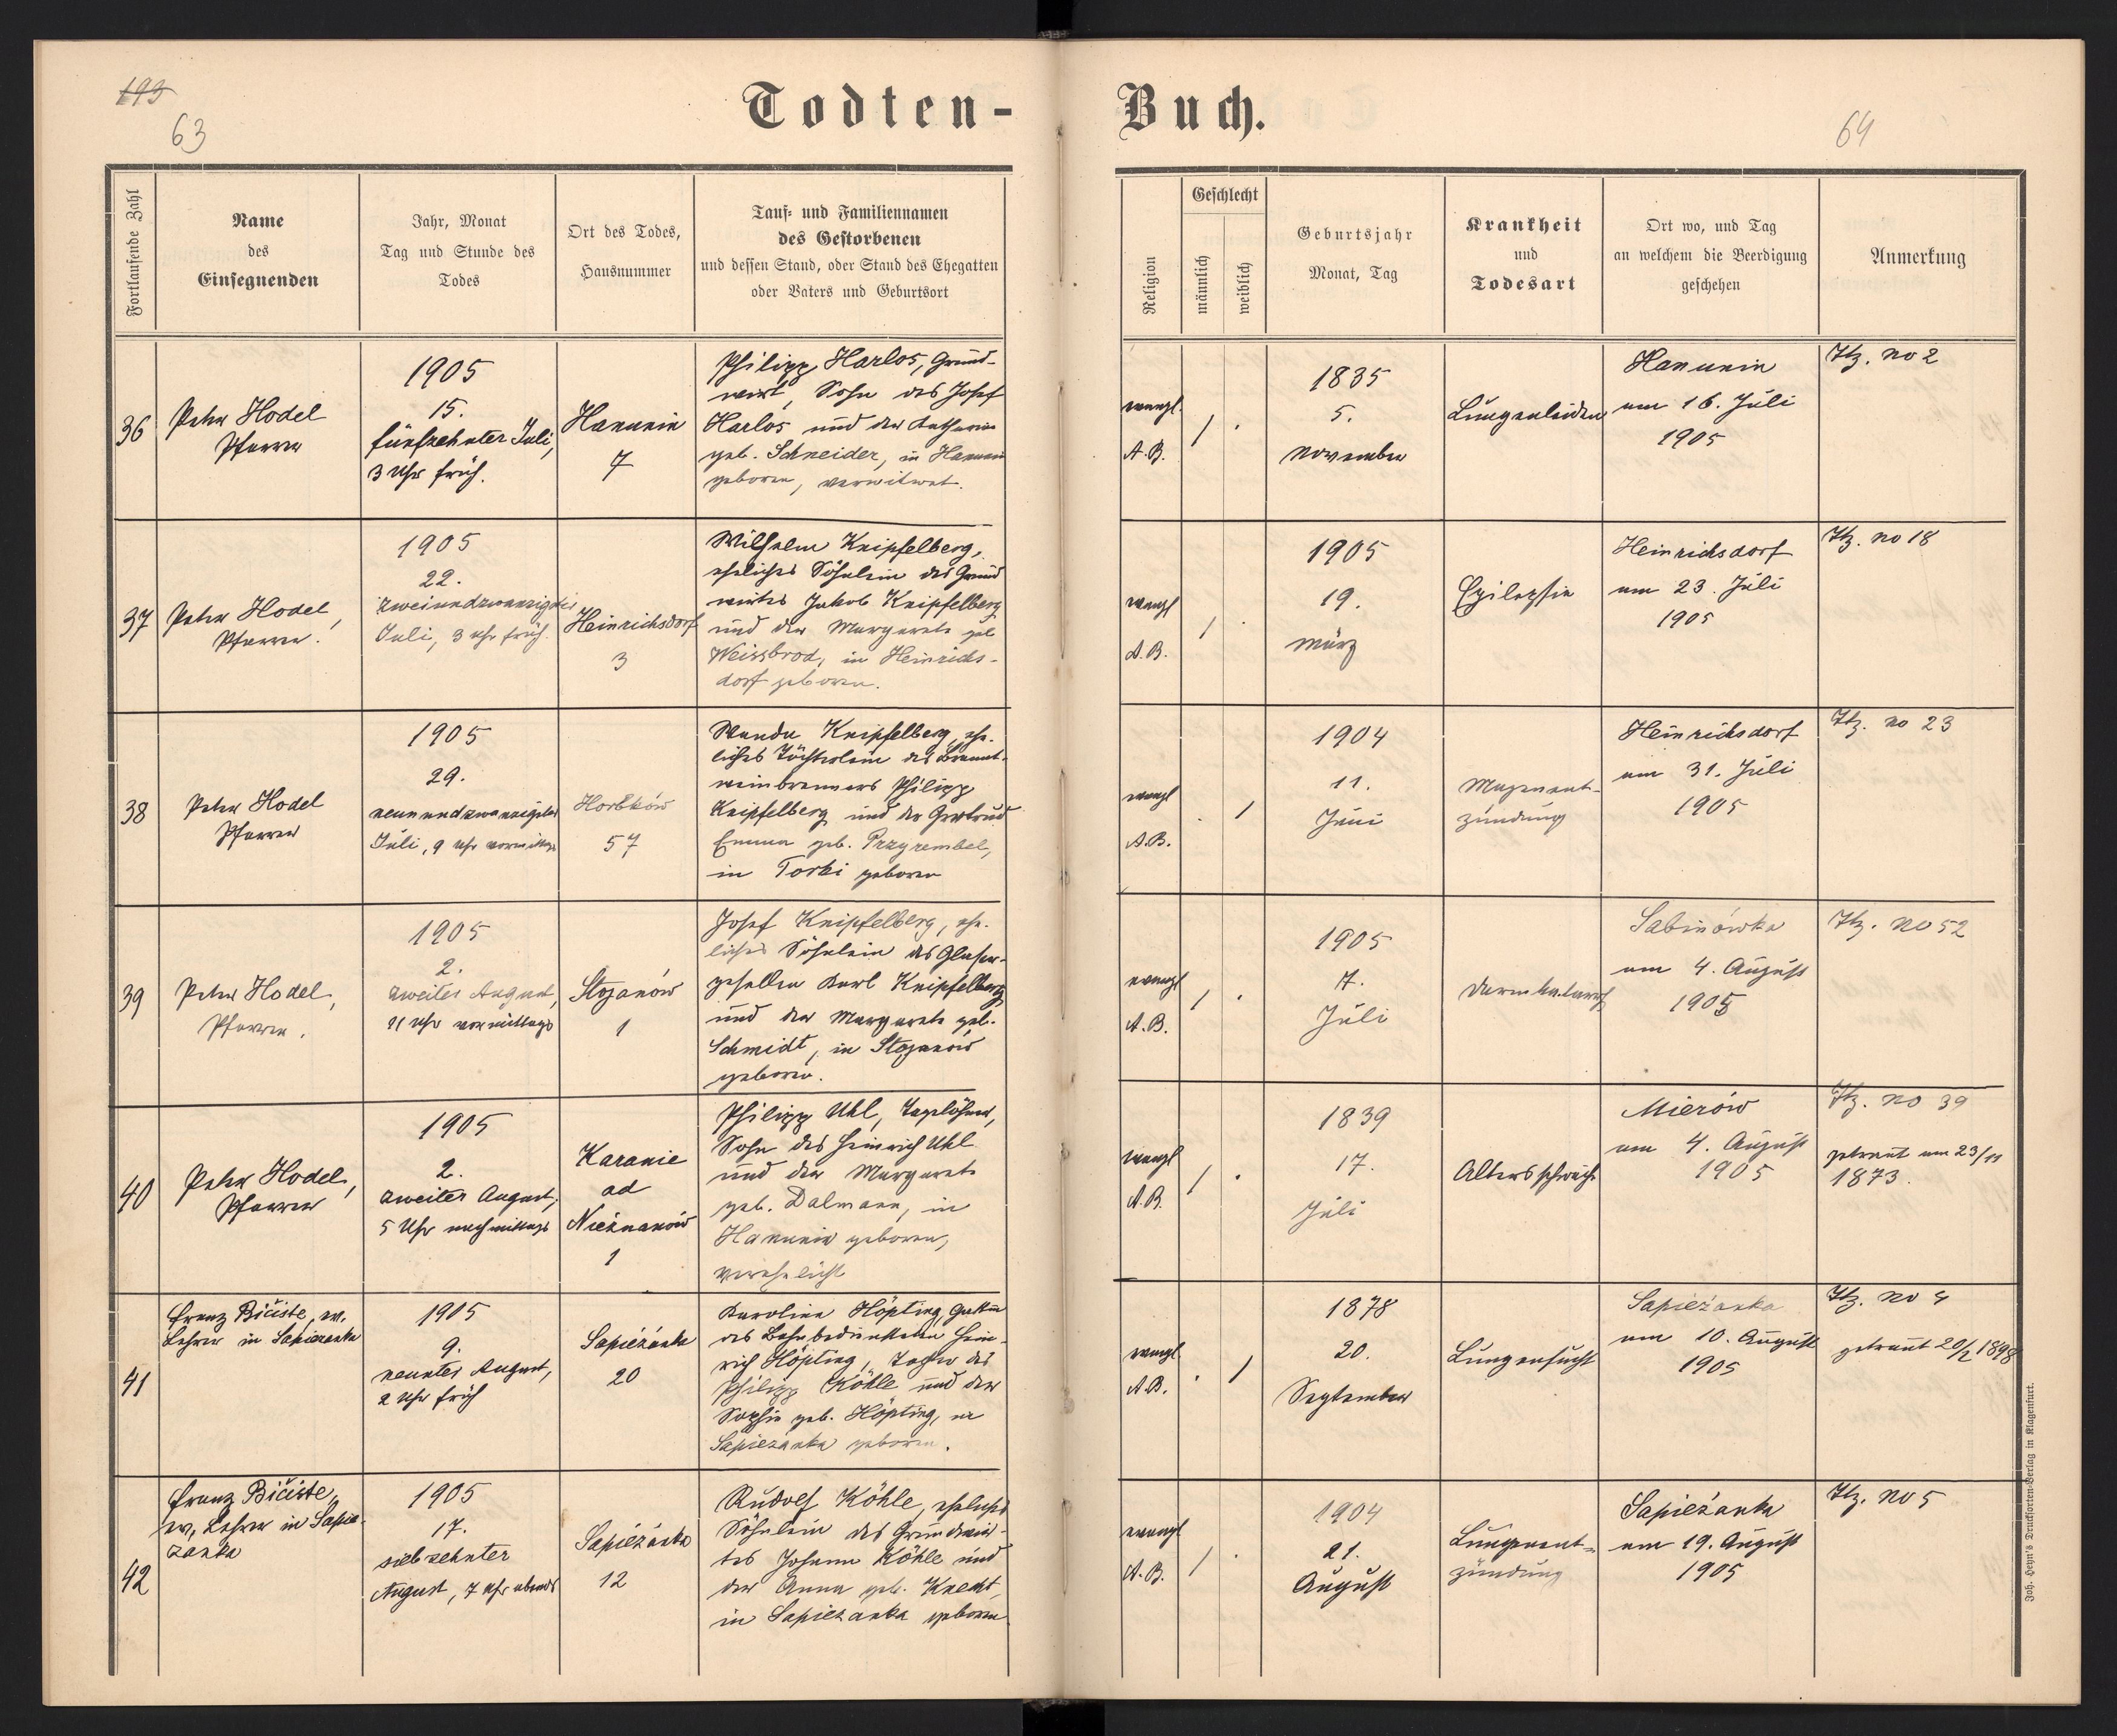 193
63
Todten-
Fortlaufende Zahl
Name
des
Einsegnenden
Jahr, Monat
Tag und Stunde des
Todes
Ort des Todes,
Hausnummer
Tauf- und Familiennamen
des Gestorbenen
und dessen Stand, oder Stand des Ehegatten
oder Vaters und Geburtsort
36
Peter Hodel
Pfarrer
1905
15.
fünfzehnter Juli,
3 Uhr früh.
Hanunin
7
Philipp Harlos, Grund-
wirt, Sohn des Josef
Harlos und der Katharina
geb. Schneider, in Hanunin
geboren, verwitwet.
37
Peter Hodel,
Pfarrer.
1905
22.
zweiundzwanzigster
Juli, 3 Uhr früh.
Heinrichsdorf
3
Wilhelm Knipfelberg,
eheliches Söhnlein des Grund
wirtes Jakob Knipfelberg
und der Margarete geb
Weissbrod, in Heinrichs-
dorf geboren.
38
Peter Hodel
Pfarrer
1905
29.
neunundzwanzigster
Juli, 9 Uhr vormittags
Horbków
57
Wanda Knipfelberg, ehe-
liches Töchterlein des Brannt-
weinbrenners Philipp
Knipfelberg und der Gertrud
Emma geb. Przyrembel,
in Torki geboren
39
Peter Hodel,
Pfarrer.
1905
2.
zweiter August,
11 Uhr vormittags
Stojanów
1
Josef Knipfelberg, ehe-
liches Söhnlein des Glaser-
gesellen Karl Knipfelberg
und der Margarete geb.
Schmidt, in Stojanów
geboren.
40
Peter Hodel,
Pfarrer
1905
2.
zweiter August,
5 Uhr nachmittags
Karanie
ad
Nieznanów
1
Philipp Uhl, Taglöhner,
Sohn des Heinrich Uhl
und der Margarete
geb. Dalmann, in
Hanunin geboren,
verehelicht
41
Franz Bičiste, ev.
Lehrer in Sapiezanka
1905
9.
neunter August,
2 Uhr früh
Sapiéżanka
20
Karolina Höpting, Gattin
des Bahnbediensteten Hein-
rich Höpting, Tochter des
Philipp Köhle und der
Sophie geb. Höpting, in
Sapiezanka geboren.
42
Franz Bičiste,
ev. Lehrer in Sapie-
zanka
1905
17.
siebzehnter
August, 7 Uhr abends
Sapiéżanka
12
Rudolf Köhle, eheliches
Söhnlein des Grundwir-
tes Johann Köhle und
der Anna geb. Knecht,
in Sapiezanka geboren
Buch.
64
Religion
Geschlecht
männlich
weiblich
Geburtsjahr
Monat, Tag
Krankheit
und
Todesart
Ort wo, und Tag
an welchem die Beerdigung
geschehen
Anmerkung
evangl.
A.B.
/ .
1835
5.
November
Lungenleiden
Hanunin
am 16. Juli
1905
Itz. no 2
evangl
A.B.
/ .
1905
19.
März
Epilepsie
Heinrichsdorf
am 23. Juli
1905
Itz. no 18
evangl
A.B.
. /
1904
11.
Juni
Magenent-
zündung
Heinrichsdorf
am 31. Juli
1905
Itz. no 23
evangl
A.B.
/ .
1905
7.
Juli
Darmkatarrh
Sabinówka
am 4. August
1905
Itz. no 52
evangl
A.B.
/ .
1839
17.
Juli
Altersschwäche
Mierów
am 4. August
1905
Itz. no 39
getraut am 23/11
1873.
evangl
A.B.
. /
1878
20.
September
Lungensucht
Sapieżanka
am 10. August
1905
Itz. no 4
getraut 20/2 1898
evangl
A.B.
/ .
1904
21.
August
Lungenent-
zündung
Sapieżanka
am 19. August
1905
Itz. no 5
Joh. Heyn's Drucksorten-Verlag in Klagenfurt.